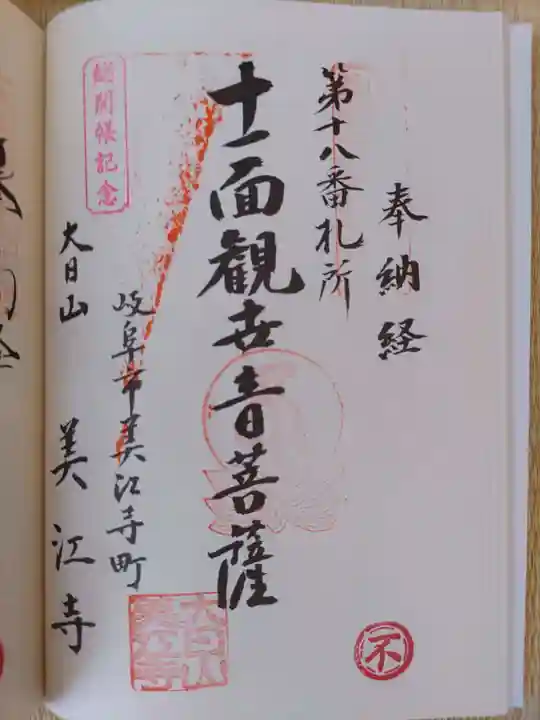 奉納経
第十八番札所
十一面観世音菩薩
岐阜市美江寺町
大日山 美江寺
総開帳記念
大日山
美江寺
不